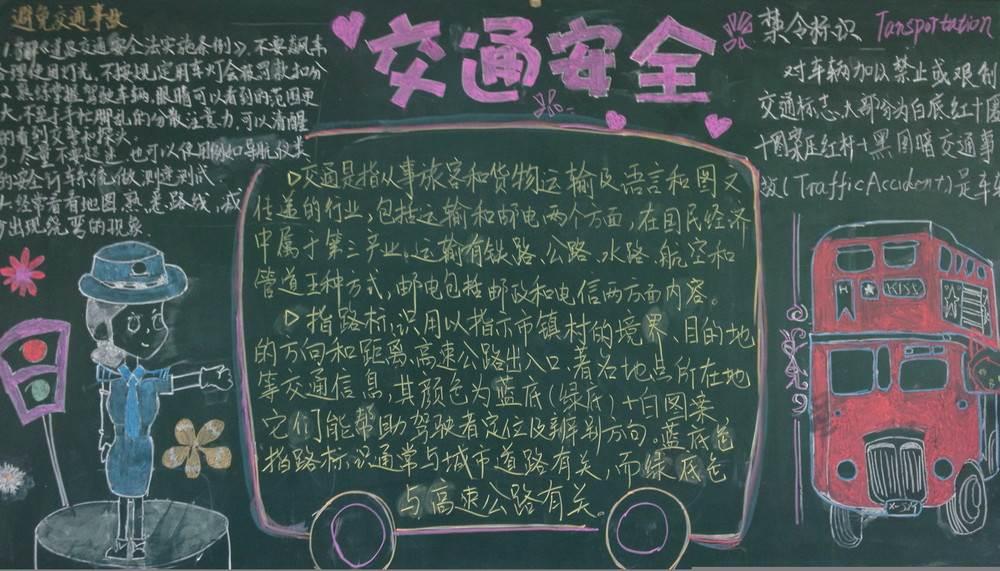 避免交通事故
1.了解《道路交通安全法实施条例》,不要飙车
合理使用灯光,不按规定用车灯会被罚款扣分
2.熟练掌握驾驶车辆,眼睛可以看到的范围更
大,不至于手忙脚乱的分散注意力,可以清醒
的看到文字和探头
3.尽量不要超速,也可以使用例如导航仪类
的安全行车系统,做测速测试.
4.经常看看地图,熟悉路线,减
少出现绕弯的现象.
交通安全
交通是指从事旅客和货物运输及语言和图文
传递的行业,包括运输和邮电两个方面,在国民经济
中属于第三产业.运输有铁路、公路、水路、航空和
管道五种方式,邮电包括邮政和电信两方面内容。
指路标识用以指示市镇村的境界、目的地
的方向和距离,高速公路出入口,著名地点所在地
等交通信息,其颜色为蓝底(绿底)+白图案,
它们能帮助驾驶者定位及辨别方向。蓝底色
指路标识通常与城市道路有关,而绿底色
与高速公路有关。
禁令标识 Tansportation
对车辆加以禁止或
交通标志,大部分为白底红十圈
十图案压红杆+黑图 交通事
故(Traffic Accident)是车
KISS
H